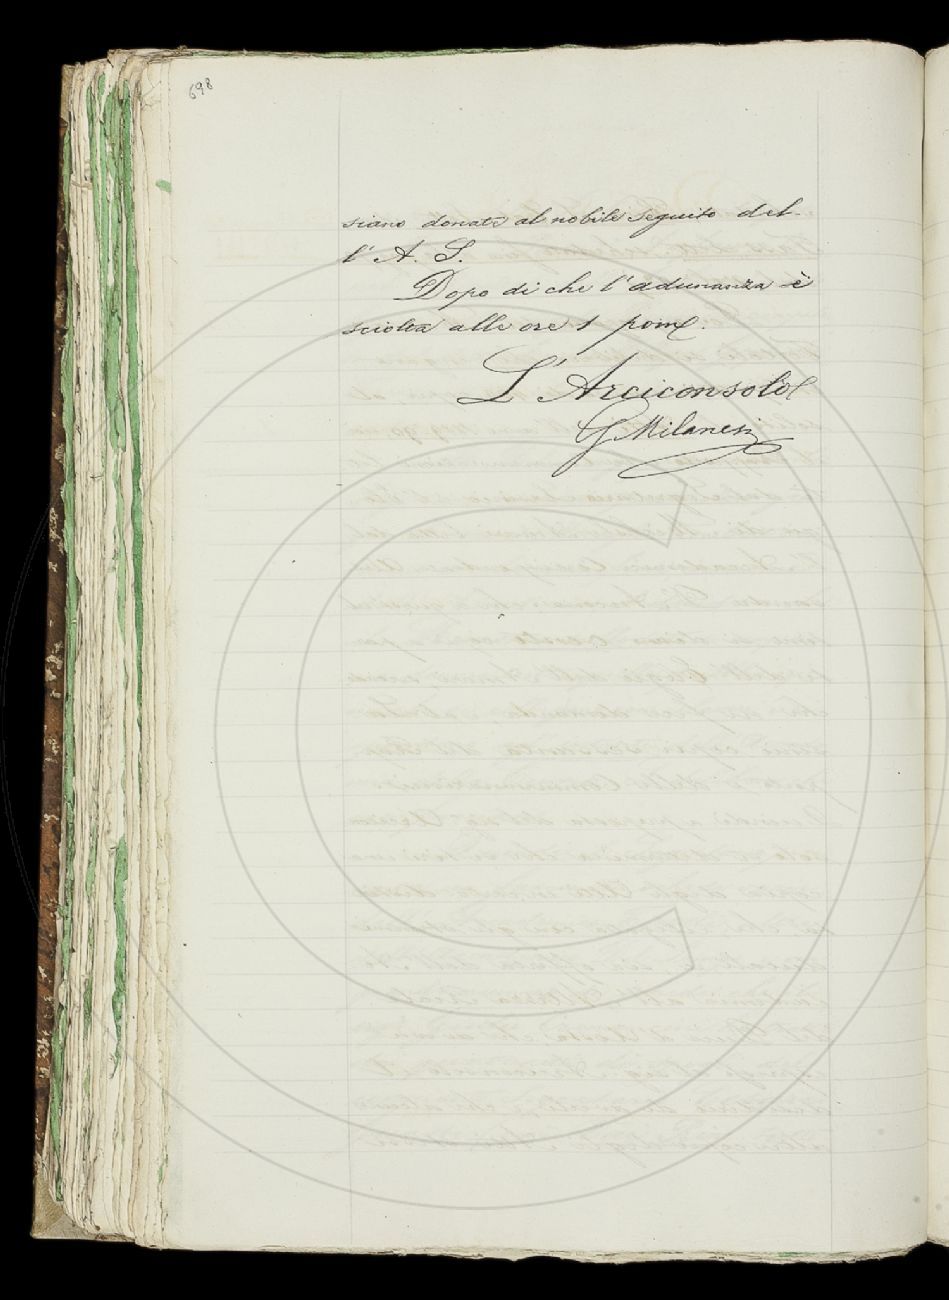 698
siano donate al nobile seguito del-
l'A. S.
Dopo di che l'adunanza è
sciolta alle ore 1 pom.
L'Arciconsolo
G Milanesi